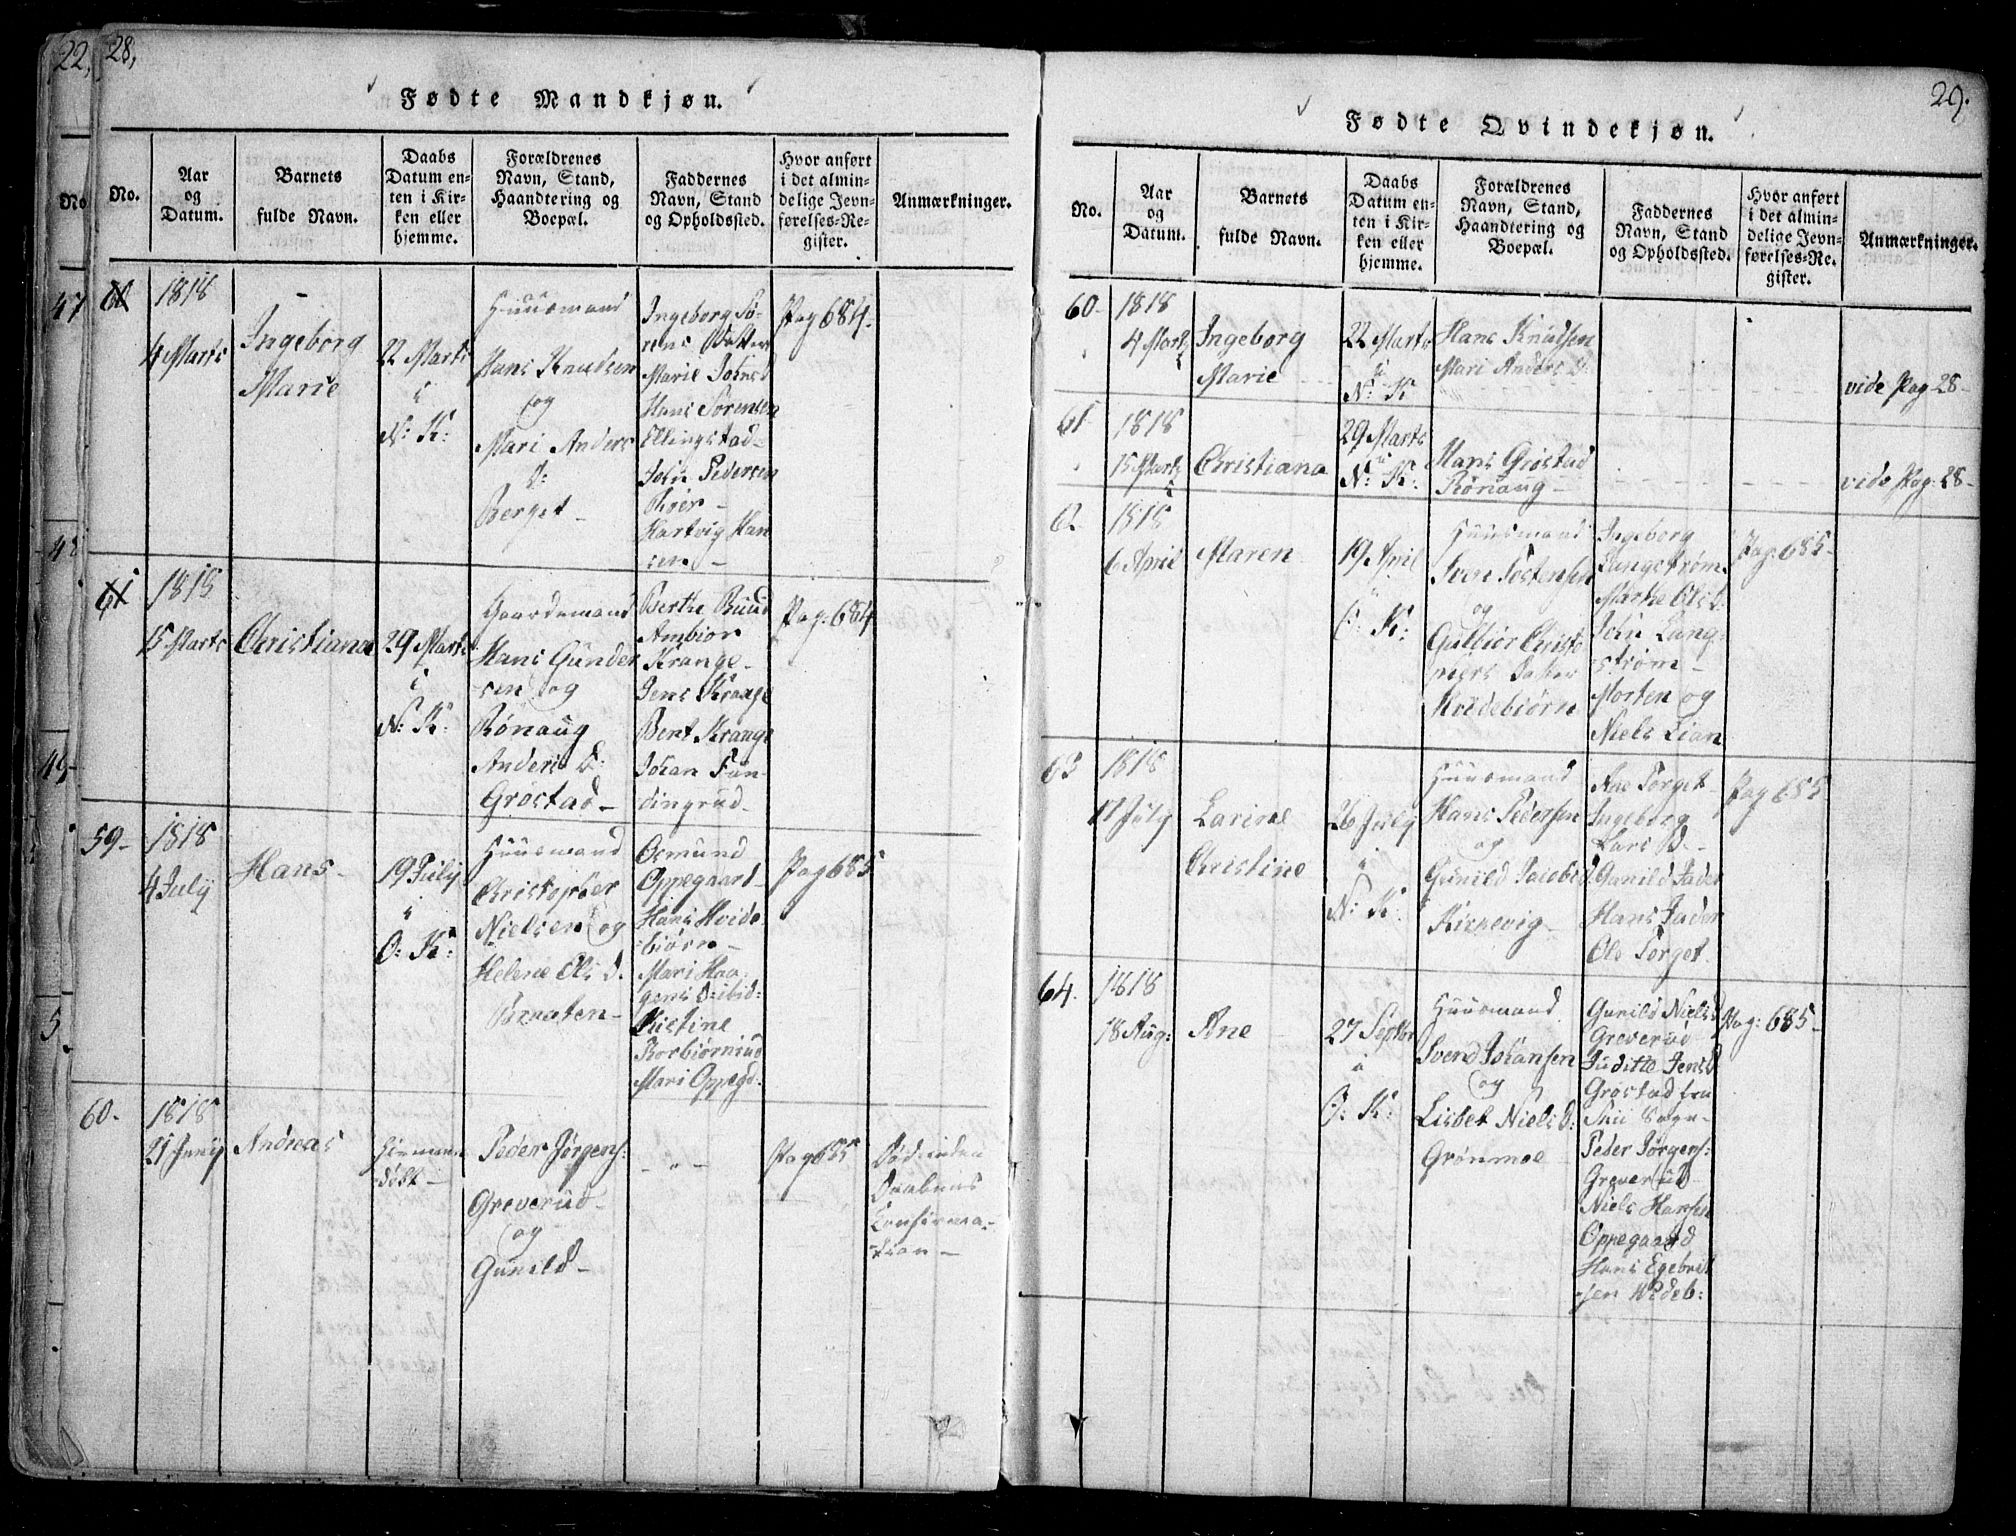 22,
28,
Fødte Mandkjøn.
No
No.
Aar
og
Datum.
Barnets
fulde Navn.
Daabs
Datum en-
ten i Kir-
ken eller
hjemme.
Forældrenes
Navn, Stand,
Haandtering og
Boepæl.
Faddernes
Navn, Stand
og Opholdssted.
Hvor anført
i det almin-
delige Jevn-
førelses-Re-
gister.
Anmærkninger.
47
48
49
5
1818
4 Marts
Ingeborg
Marie
22 Marts
i
N: K:
Huusmand
Hans Knudsen
og
Mari Anders
D:
Berget
Ingeborg Sø-
rens Datter
Marie Johns D
Hans Sørensen
Ellingstad-
John Pedersen
Hartvig Han
sen
Pag 684.
61
1818
15 Marts
Christiana
29 Marts
i
N: K:
Gaardmand
Hans Gunder
sen og
Rønaug
Anders D:
Grøstad
Berthe Ruud
Ambiør
Krange
Jens Krange
Bent Krange
Johan Fun-
dingrud
Pag: 684
59-
1818
4 July
Hans
19 July
i
O: K:
Huusmand
Christopher
Nielsen og
Helene Ols D.
Braaten
Osmund
Oppegaard
Hans Hvide
biørn
Mari Haa-
gens D: ibid:
Kistine
Torbiørnsrud
Mari Oppegd.
Pag 685
60.
1818
21 Juny
Andreas
hiemme
døbt
Peder Jørgens:
Greverud
og
Gunild
- " -
Pag 685
Død inden
Daabens
Konfirma-
tion
29.
Fødte Qvindekjøn.
No.
Aar
og
Datum.
Barnets
fulde Navn.
Daabs
Datum en-
ten i Kir-
ken eller
hjemme.
Forældrenes
Navn, Stand,
Haandtering og
Boepæl.
Faddernes
Navn, Stand
og Opholdssted.
Hvor anført
i det almin-
delige Jevn-
førelses-Re-
gister.
Anmærkninger.
60.
1818
4 Marts
Ingeborg
Marie
22 Marts
i
N: K
Hans Knudsen
Mari Anders D
vide Pag 28-
61
1818
15 Marts
Christiana
29 Marts
i
N: K:
Hans Grøstad
Rønaug
vide Pag: 28-
62
1818
6 April
Maren
19 April
i
O: K:
Huusmand
Sven Tostensen
og
Gulbiør Christo
phers Datter
Hvidebiørn
Ingeborg
Langstrøm
Marthe Ols D:
John Lang-
strøm
Morten og
Niels Lian
Pag: 685-
63
1818
11 July
Larine
Christine
26 July
i
N: K:
Huusmand
Hans Pedersen
og
Gunild Jacobs D
Kirkevig
Ane Torget
Ingeborg
Lars D.
Gunild Jader
Hans Jader
Ole Torget
Pag 685
64.
1818
18 Aug:
Ane
27 Septbr
i
O: K:
Huusmand
Svend Johansen
og
Lisbet Niels D:
Grønmoe
Gunild Niels D
Greverud
Juditte Jens D
Grøstad fra
Skii Sogn
Peder Jørgens:
Greverud
Niels Hansen
Oppegaard
Hans Egebret
sen Hvideb:
Pag: 685-